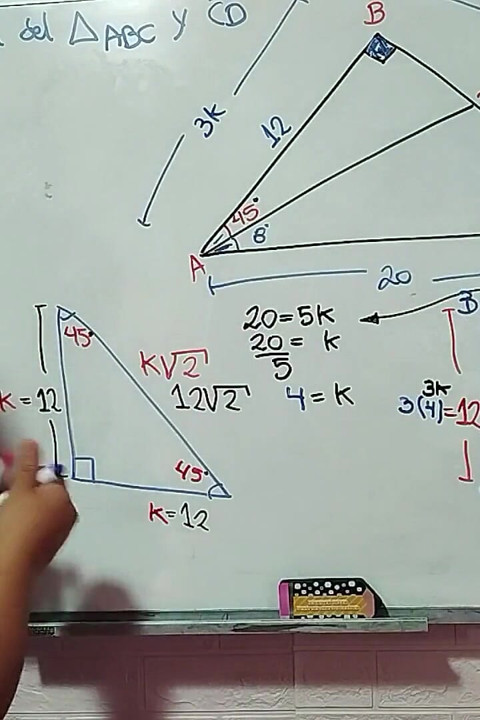 del △ABC y CD
B
3k
12
45°
8°
A
20
20=5k
20/5 = k
4 = k
B
3k
3(4)=12
45°
k√2
12√2
k = 12
45°
k=12